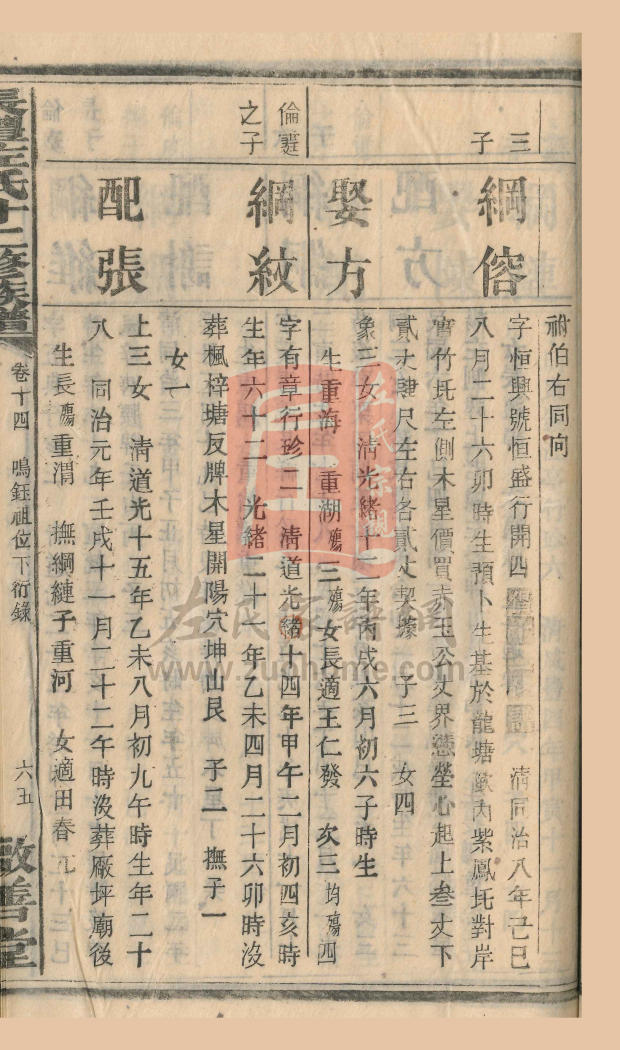 祔伯右同向
三子
綱傛
字恒興號恒盛行開四 清同治八年己巳
八月二十六卯時生預卜生基於龍塘 內紫鳳坵對岸
竹坵左側木星價買赤玉公丈界憑塋心起上叁丈下
貳丈肆尺左右各貳丈契據 子三 女四
娶方
象三女 清光緒十二年丙戌六月初六子時生
生重海 重湖殤 三殤 女長適王仁發 次三均殤 四
倫霆之子
綱紋
字有章行珍一 清道光緒十四年甲午二月初四亥時
生年六十二 光緒二十一年乙未四月二十六卯時沒
葬楓梓塘反牌木星開陽穴坤山艮 子二 撫子一
女一
配張
上三女 清道光十五年乙未八月初九午時生年二十
八 同治元年壬戌十一月二十二午時沒葬廠坪廟後
生長殤 重渭 撫綱縺子重河 女適田春
長澧左氏十二修族譜
卷十四 鳴鈺祖位下衍錄
六五
敦善堂
左氏宗親
左氏家譜網
www.zuohome.com